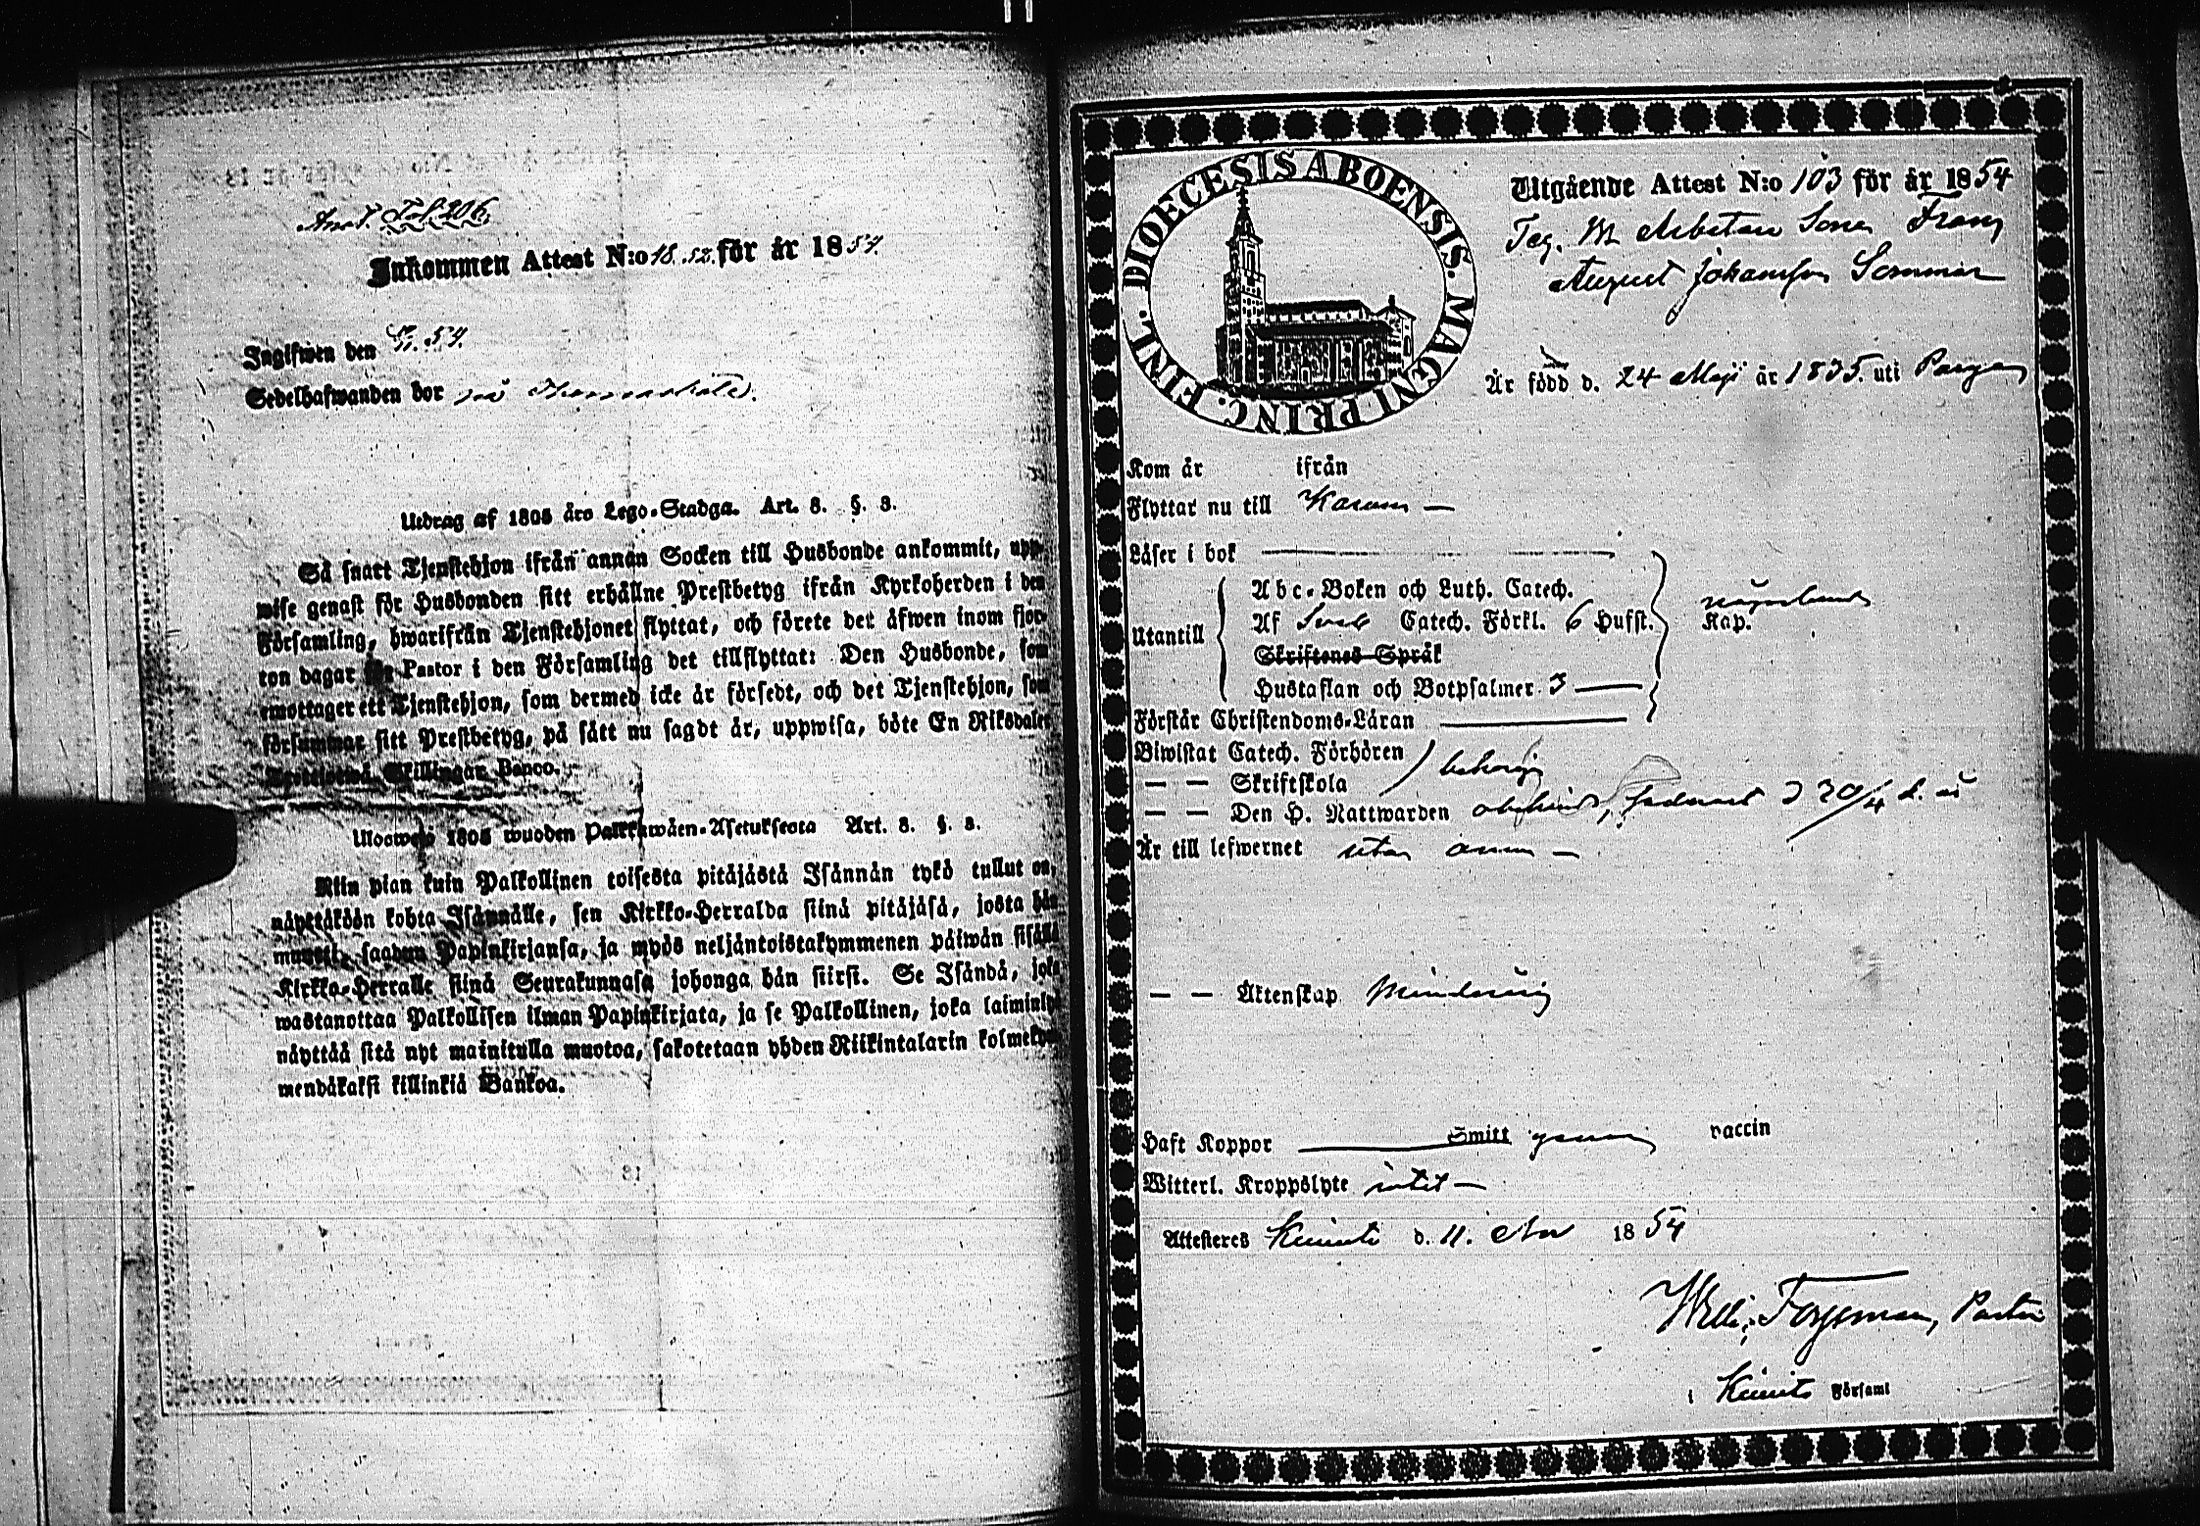 Anot. Fol. 206.
Inkommen Attest N:o 18. för år 1854.
Ingifwen den 54.
Sedelhafwanden bor på
Utdrag af 1805 års Lego-Stadga. Art. 8. §. 3.
Så snart Tjenstehjon ifrån annan Socken till Husbonde ankommit, upp-
wise genast för Husbonden sitt erhållne Prestbetyg ifrån Kyrkoherden i den
Församling, hwarifrån Tjenstehjonet flyttat, och förete det äfwen inom fjor-
ton dagar för Pastor i den Församling det tillflyttat: Den Husbonde, som
emottager ett Tjenstehjon, som dermed icke är försedt, och det Tjenstehjon, som
försummar sitt Prestbetyg, på sätt nu sagdt är, uppwisa, böte En Riksdaler
Trettiotwå Skillingar Banco.
Ulosweto 1805 wuoden Palkkawäen-Asetuksesta Art. 8. §. 3.
Niin pian kuin Palkollinen toisesta pitäjästä Isännän tykö tullut on,
näyttäköön kohta Isännälle, sen Kirkko-Herralda siinä pitäjäsä, josta hän
muutti, saadun Papinkirjansa, ja myös neljäntoistakymmenen päiwän sisällä
Kirkko-Herralle siinä Seurakunnasa johonga hän siirsi. Se Isändä, joka
wastanottaa Palkollisen ilman Papinkirjata, ja se Palkollinen, joka laiminlyö
näyttää sitä nyt mainitulla muotoa, sakotetaan yhden Riikintalarin kolmekym-
mendäkaksi killinkiä Bankoa.
DIOECESIS ABOENSIS. MAGNI PRINC. FINL.
Utgående Attest N:o 103 för år 1854
Arbetare Sonen Frans
August Johansson Sommar
Är född d. 24 Maji år 1835. uti Pargas
Kom år ifrån
Flyttar nu till Karuna —
Läser i bok
Abc-Boken och Luth. Catech.
Utantill Af Sveb Catech. Förkl. 6 Hufst. någorlunda Kap.
Skriftenes Språk
Hustaflan och Botpsalmer 3
Förstår Christendoms-Läran
Biwistat Catech. Förhören
— — Skriftskola
— — Den H. Nattwarden
Är till lefwernet utan anm —
— — Äktenskap Minderårig
Haft Koppor Smitt genom vaccin
Witterl. Kroppslyte intet —
Attesteres Kimito d. 11. Nov 1854
Forssman, Pastor
i Kimito Församl